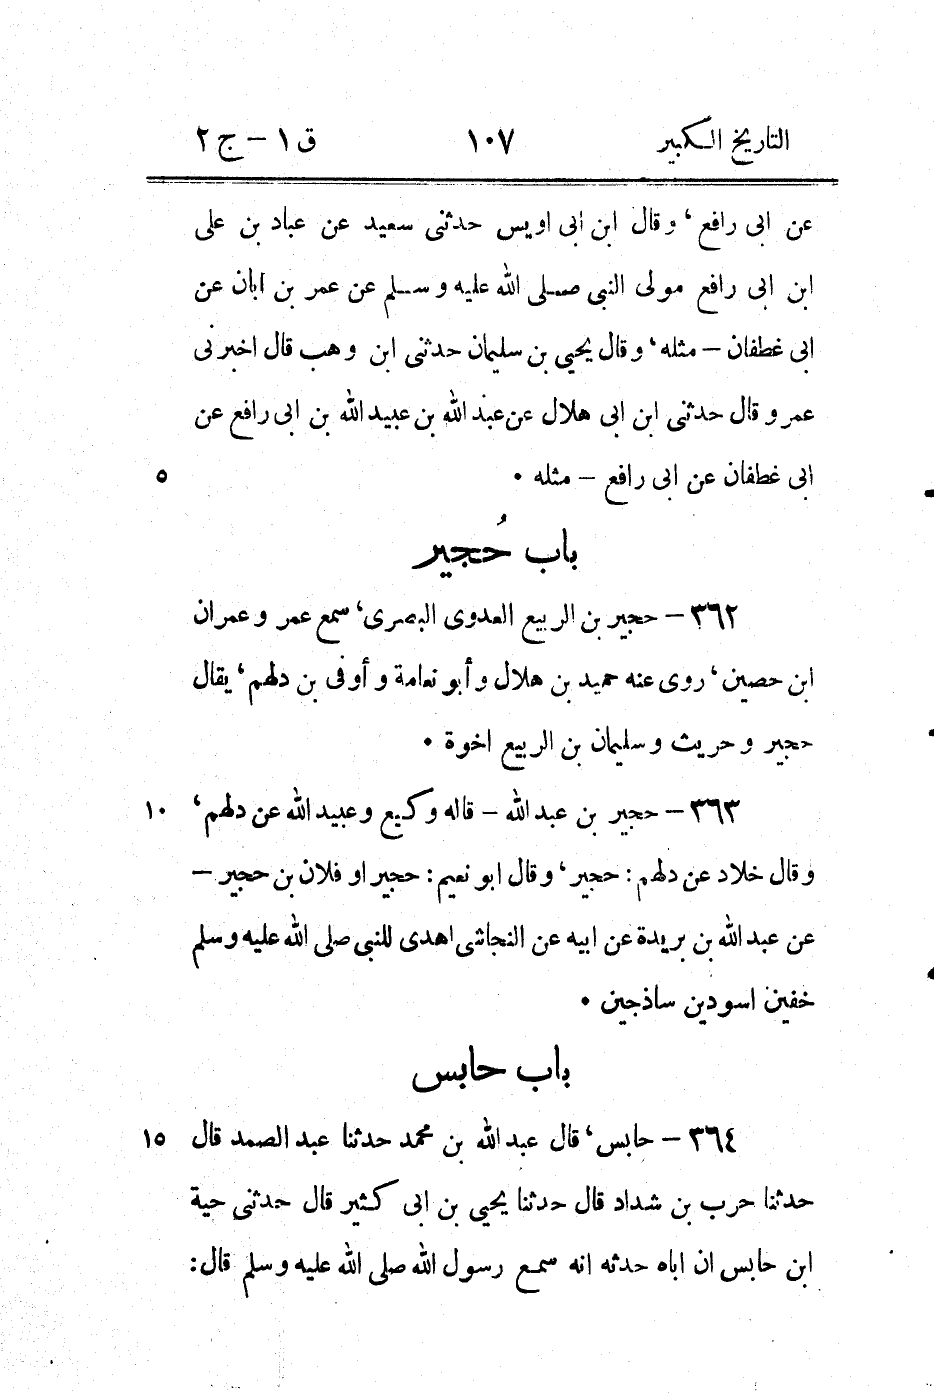 التاريخ الكبير ١٠٧ ق ١ – ج ٢
عن ابى رافع، وقال ابن ابى اويس حدثنى سعيد عن عباد بن على
ابن ابى رافع مولى النبى صلى الله عليه وسلم عن عمر بن ابان عن
ابى غطفان – مثله، وقال يحيى بن سليمان حدثنى ابن وهب قال اخبرنى
عمر وقال حدثنى ابن ابى هلال عن عبد الله بن عبيد الله بن ابى رافع عن
ابى غطفان عن ابى رافع – مثله ٠ ٥
باب حُجير
٣٦٢ – حجير بن الربيع العدوى البصرى، سمع عمر وعمران
ابن حصين، روى عنه حميد بن هلال وأبو نعامة وأوفى بن دلهم، يقال
حجير وحريث وسليمان بن الربيع اخوة ٠
٣٦٣ – حجير بن عبد الله – قاله وكيع وعبيد الله عن دلهم، ١٠
وقال خلاد عن دلهم: حجير، وقال ابو نعيم: حجير او فلان بن حجير –
عن عبد الله بن بريدة عن ابيه عن النجاشى اهدى للنبى صلى الله عليه وسلم
خفين اسودين ساذجين ٠
باب حابس
٣٦٤ – حابس، قال عبد الله بن محمد حدثنا عبد الصمد قال ١٥
حدثنا حرب بن شداد قال حدثنا يحيى بن ابى كثير قال حدثنى حية
ابن حابس ان اباه حدثه انه سمع رسول الله صلى الله عليه وسلم قال: